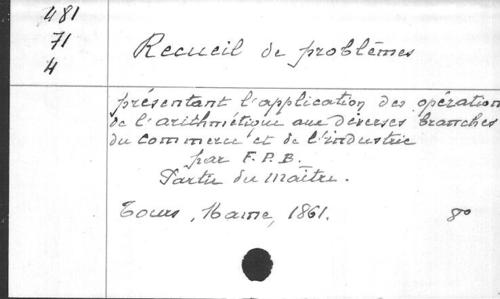 481
71
4
Recueil de problèmes
présentant l'application des opération
de l'arithmétique aux diverses branches
du commerce et de l'industrie
par F.P.B.
Partie du Maître.
Tours, Mame, 1861. 8º